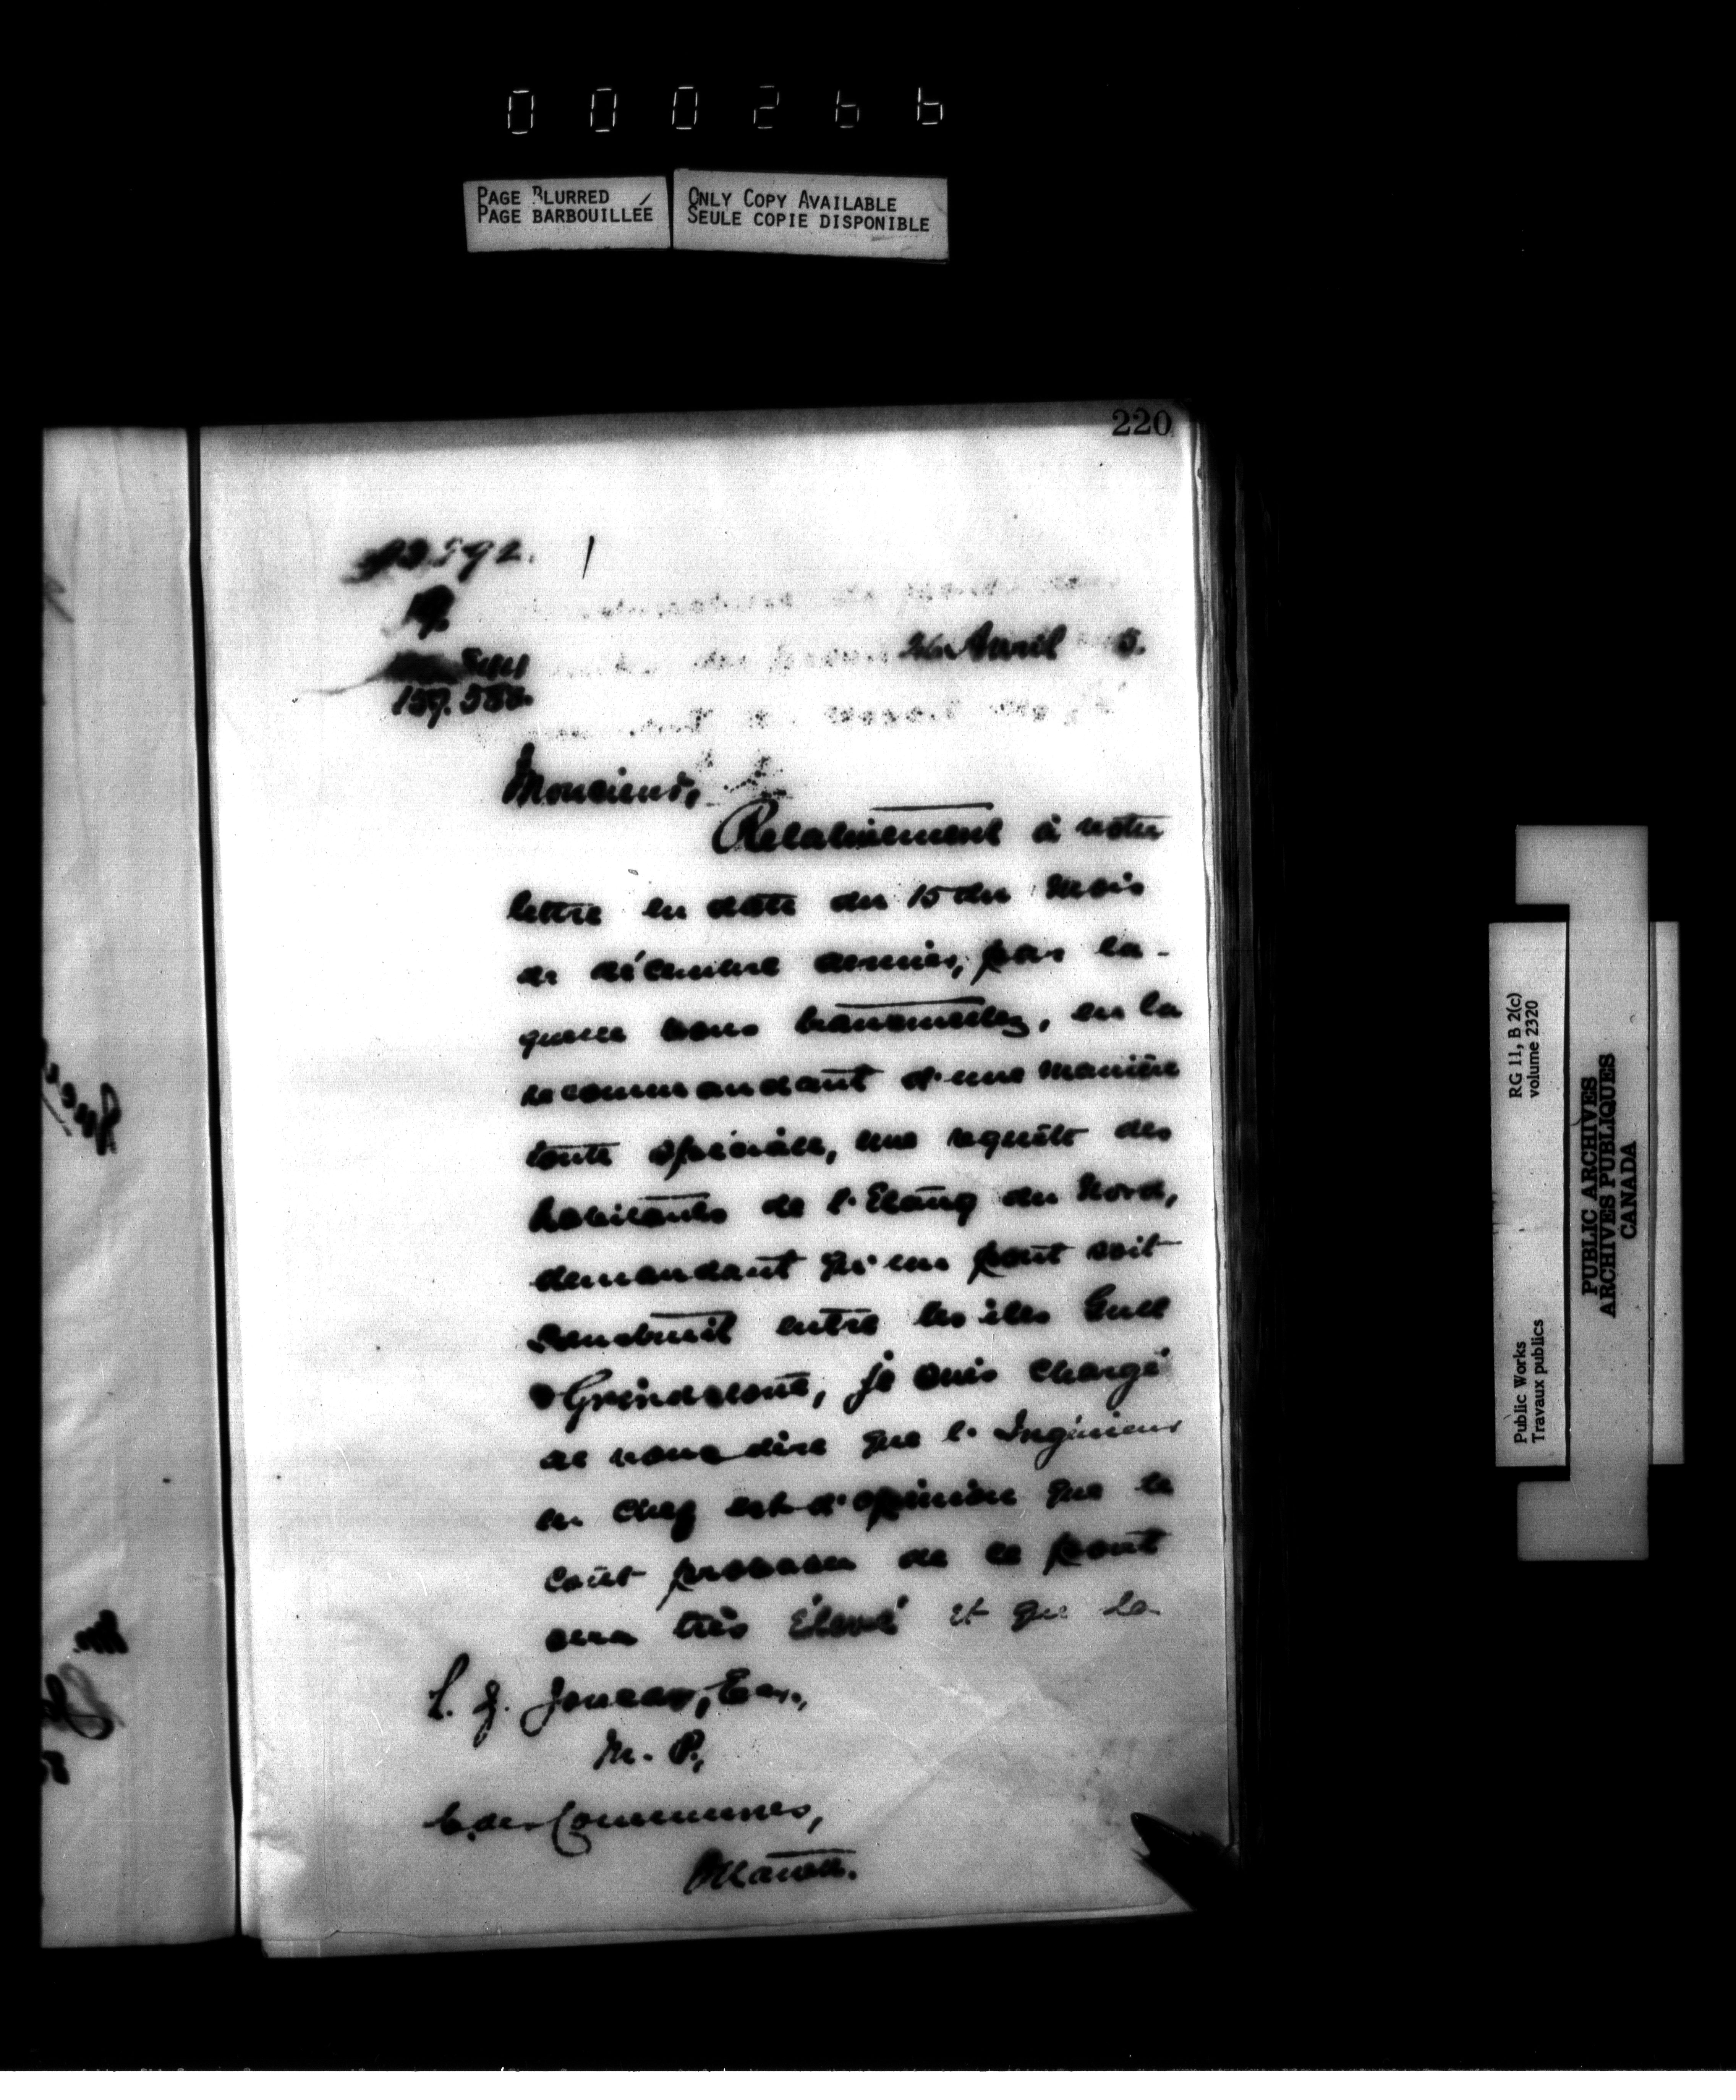 000266
PAGE BLURRED
PAGE BARBOUILLÉE
ONLY COPY AVAILABLE
SEULE COPIE DISPONIBLE
220
157.588.
26 Avril 5.
Monsieur,
Relativement à votre
lettre en date du 15 du mois
de décembre dernier, par la-
quelle vous transmettez, en la
recommandant d'une manière
toute spéciale, une requête des
habitants de l'Etang du Nord,
demandant qu'un pont soit
construit entre les îles Gull
& Grindstone, je suis chargé
de vous dire que l'Ingénieur
en chef est d'opinion que le
coût probable de ce pont
sera très élevé et que la
L. J. Joncas, Ecr.,
M. P.,
C. des Communes,
Ottawa.
Public Works
Travaux publics
RG 11, B 2(c)
volume 2320
PUBLIC ARCHIVES
ARCHIVES PUBLIQUES
CANADA